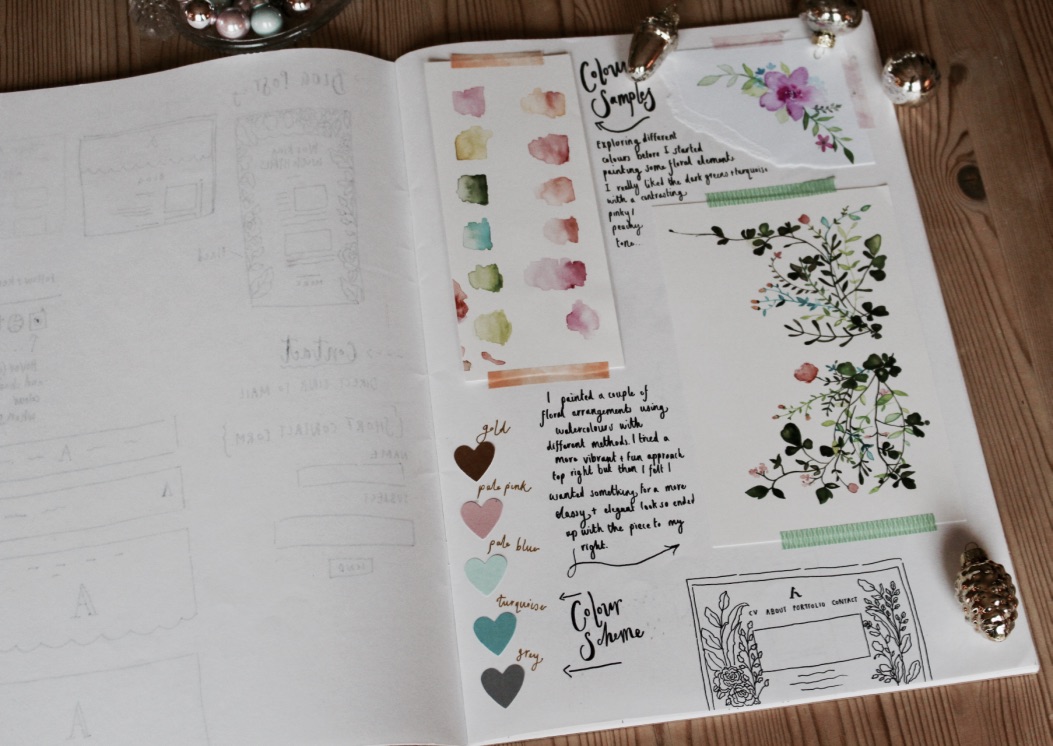 Colour
Samples
Exploring different
colours before I started
painting some floral elements
I really liked the dark greens + turquoise
with a contrasting
pinky /
peachy
tone...
I painted a couple of
floral arrangements using
watercolours with
different methods. I tried a
more vibrant + fun approach
top right but then I felt I
wanted something for a more
classy + elegant look so ended
up with the piece to my
right.
gold
pale pink
pale blue
turquoise
grey
Colour
Scheme
CV ABOUT PORTFOLIO CONTACT
BLOG POST
Contact
DIRECT LINK TO MAIL
{SHORT CONTACT FORM}
NAME
SEND
A
A
A
A